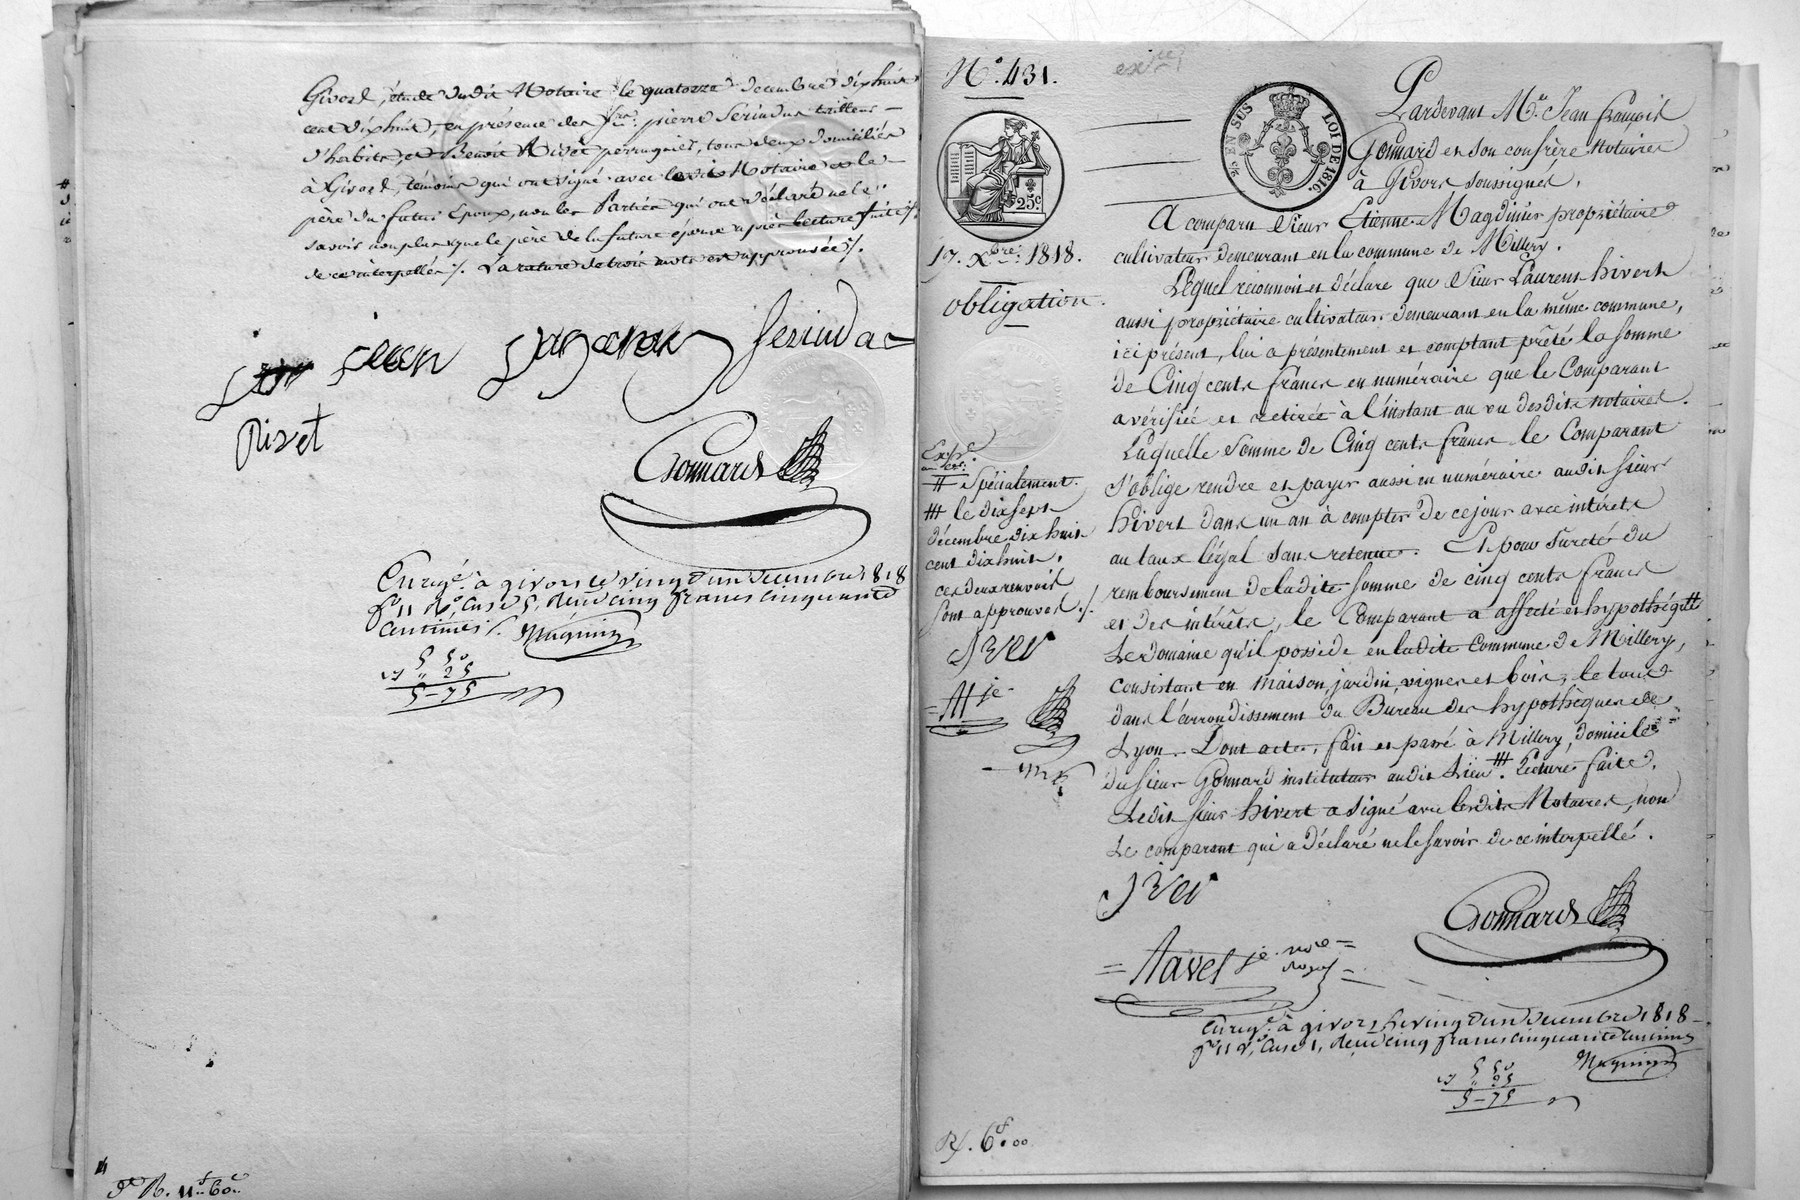 Givors, étude dudit Notaire le quatorze decembre dixhuit
cent dixhuit, en présence des srs. pierre Serindas tailleur
d'habits, et Benoit Rivet perruquier, tous deux domiciliés
à Givors, témoins qui ont signé avec ledit Notaire et le
père du futur Epoux, non les Parties qui ont déclaré ne le
savoir non plus que le père de la future épouse après lecture faite
de ce interpellés ./. La rature de trois mots est approuvée ./.
jean Serindas
Rivet
Gonnard
Enregé à givors le vingt d'un decembre 1818
fo 11 Ro, Case 5, deux cinq francs cinquante
centimes ./.
5 50
" 25
5-75
R. 11f 60c
No. 431.
exre
EN SUS LOI DE 1816.
25c.
17. Xbre. 1818.
obligation.
Pardevant Me. Jean François
Gonnard et son confrère Notaires
à Givors soussignés.
A comparu Sieur Etienne Magdinier propriétaire
cultivateur demeurant en la commune de Millery.
Lequel reconnoit et déclare que Sieur Laurent hivert
aussi propriétaire cultivateur demeurant en la même commune,
ici présent, lui a présentement et comptant prêté la somme
de Cinq cents francs en numéraire que le Comparant
a vérifiée et retirée à l'instant au vu desdits notaires.
Laquelle Somme de Cinq cents francs le Comparant
s'oblige rendre et payer aussi en numéraire audit sieur
hivert dans un an à compter de ce jour avec intérêts
au taux légal sans retenue. Et pour sureté du
remboursement de ladite somme de cinq cents francs
et des intérêts, le Comparant a affecté et hypothéqué #
Le Domaine qu'il possède en ladite Commune de Millery,
Consistant en maison, jardin, vignes et bois, le tout
dans l'arrondissement du Bureau des hypothèques de
Lyon. Dont acte, fait et passé à Millery, domicile
du sieur Gonnard instituteur audit Lieu ##. Lecture faite,
Ledit sieur hivert a signé avec lesdits Notaires, non
Le comparant qui a déclaré ne le savoir de ce interpellé.
Expé.
# Spécialement
## le dixsept
décembre dix huit
cent dix huit.
ces deux renvois
sont approuvés ./.
Gonnard
= Navet je. nore =
royal
Enregé. à givors le vingt d'un decembre 1818
fo 11 Ro, Case 1, deux cinq francs cinquante centimes
5 50
" 25
5-75
R. 6f 00